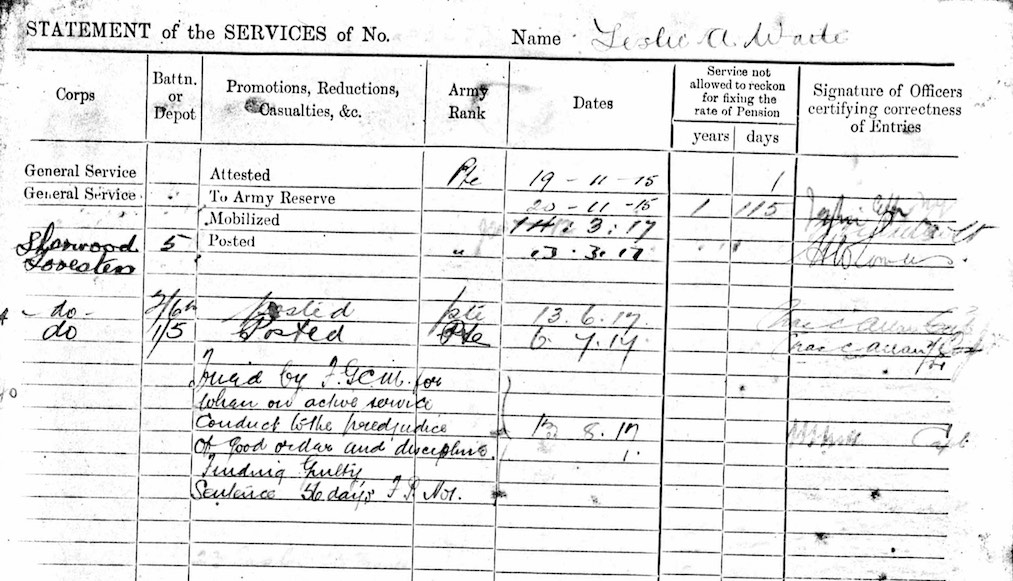 STATEMENT of the SERVICES of No. Name Leslie A Waite
Corps
Battn. or Depot
Promotions, Reductions, Casualties, &c.
Army Rank
Dates
Service not allowed to reckon for fixing the rate of Pension
years days
Signature of Officers certifying correctness of Entries
General Service Attested Pte 19-11-15 1
General Service To Army Reserve 20-11-15 1 115
Mobilized 3.17
Sherwood 5 Posted " 13.3.17
Foresters
- do - 2/6th Posted pte 13.6.17
do 1/5 Posted Pte 6.7.17
Tried by F.G.C.M. for
when on active service
Conduct to the predjudice 13 8.17
of good order and discipline.
Finding Guilty
Sentence 56 days F.P. No1.
Capt